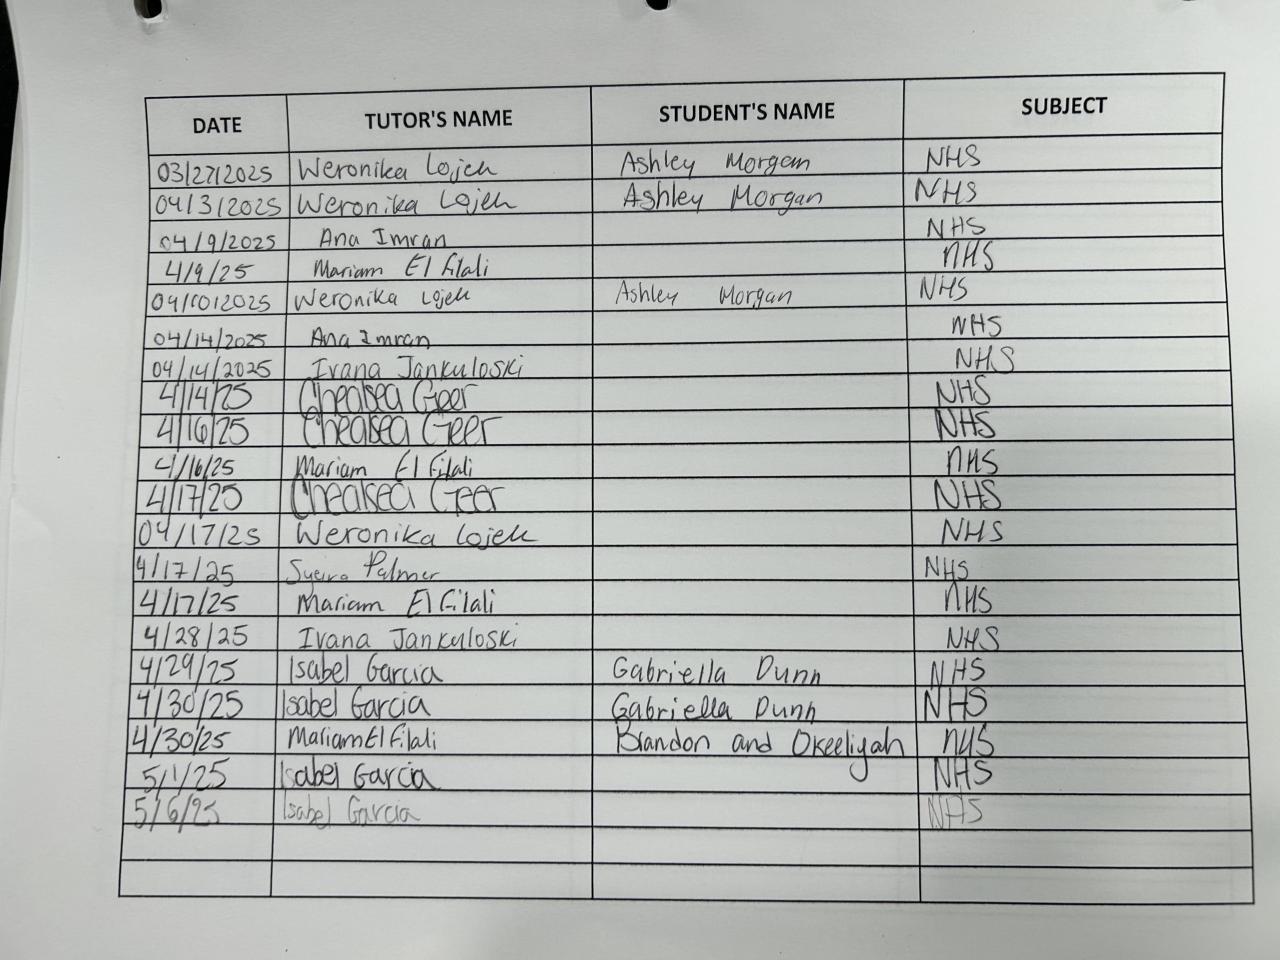 DATE TUTOR'S NAME STUDENT'S NAME SUBJECT
03/27/2025 Weronika Lojek Ashley Morgan NHS
04/3/2025 Weronika Lojek Ashley Morgan NHS
04/9/2025 Ana Imran NHS
4/9/25 Mariam El filali NHS
04/10/2025 Weronika Lojek Ashley Morgan NHS
04/14/2025 Ana Imran NHS
04/14/2025 Ivana Jankuloski NHS
4/14/25 Chealsea Geer NHS
4/16/25 Chealsea Geer NHS
4/16/25 Mariam El Filali NHS
4/17/25 Chealsea Geer NHS
04/17/25 Weronika Lojek NHS
4/17/25 Palmer NHS
4/17/25 Mariam El Filali NHS
4/28/25 Ivana Jankuloski NHS
4/29/25 Isabel Garcia Gabriella Dunn NHS
4/30/25 Isabel Garcia Gabriella Dunn NHS
4/30/25 Mariam El filali Brandon and Okeeliyah NHS
5/1/25 Isabel Garcia NHS
5/6/25 Isabel Garcia NHS